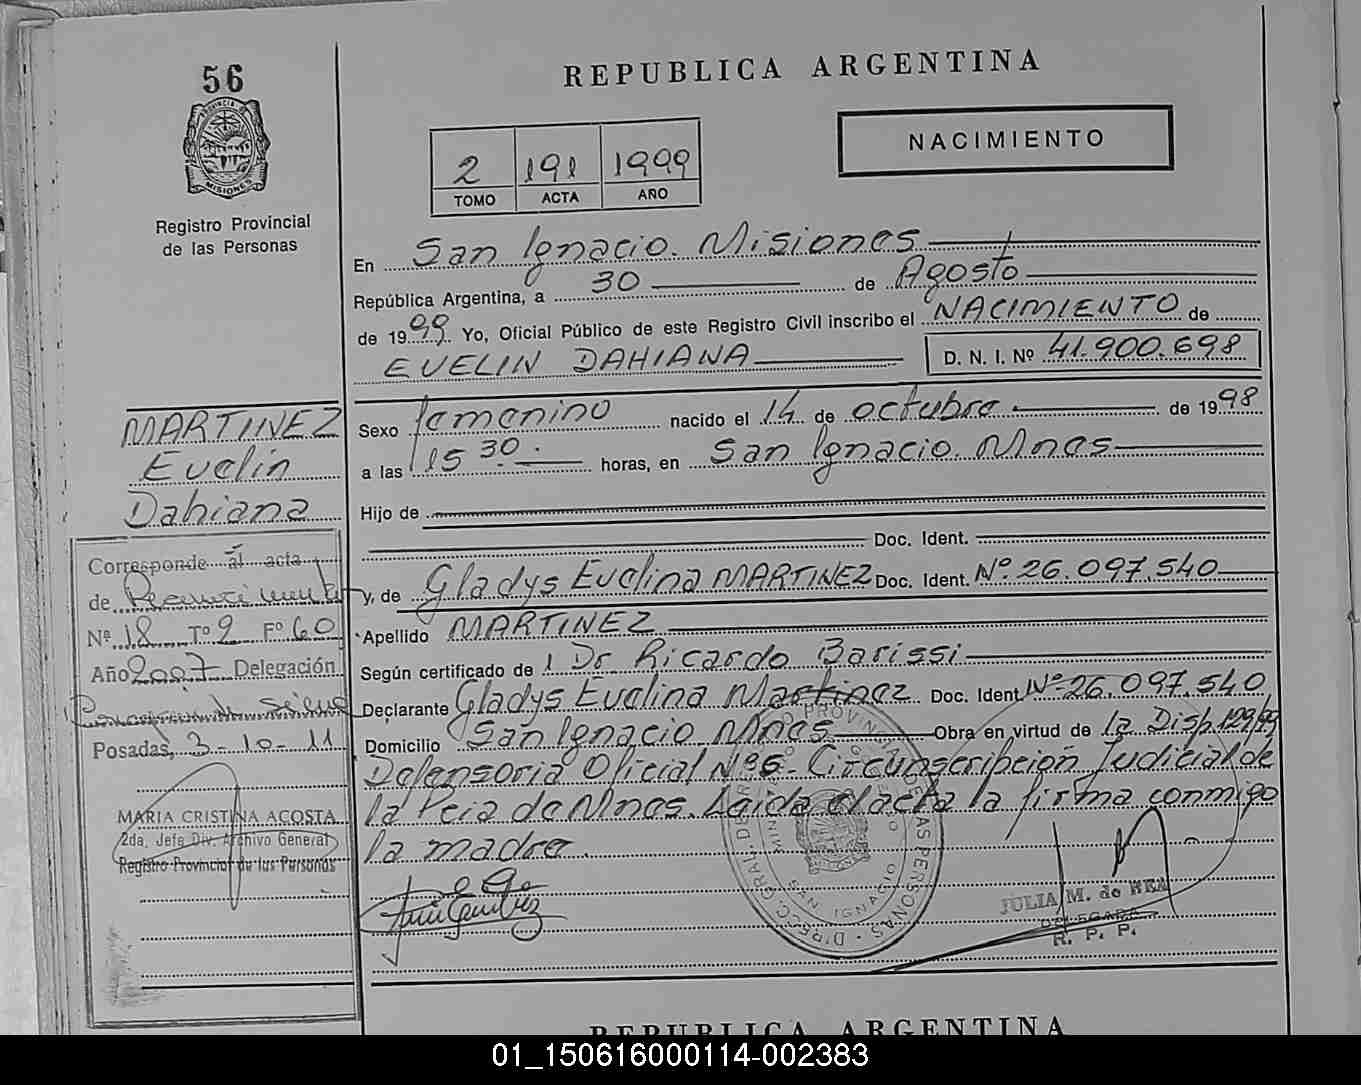 56
REPUBLICA ARGENTINA
PROVINCIA DE
MISIONES
Registro Provincial
de las Personas
2 191 1999
TOMO ACTA AÑO
NACIMIENTO
En San Ignacio. Misiones
República Argentina, a 30 de Agosto
de 1999 Yo, Oficial Público de este Registro Civil inscribo el NACIMIENTO de
EVELIN DAHIANA D. N. I. Nº 41.900.698
Sexo femenino nacido el 14 de octubre de 1998
a las 15 30. horas, en San Ignacio. Mnes
Hijo de
Doc. Ident.
y, de Gladys Evelina MARTINEZ Doc. Ident. Nº 26.097.540
Apellido MARTINEZ
Según certificado de Dr Ricardo Barissi
Declarante Gladys Evelina Martinez Doc. Ident Nº 26.097.540
Domicilio San Ignacio Mnes Obra en virtud de la Disp. 129/99
Defensoria Oficial Nº 6 - Circunscripción Judicial de
la Pcia de Mnes. Leida el acta la firma conmigo
la madre.
JULIA M. de REA
DELEGADA
R. P. P.
SAN IGNACIO
MARTINEZ
Evelin
Dahiana
Corresponde al acta
de Reconocimiento
Nº 18 Tº 2 Fº 60
Año 2007 Delegación
Posadas, 3-10-11
MARIA CRISTINA ACOSTA
2da. Jefa Div. Archivo General
Registro Provincial de las Personas
REPUBLICA ARGENTINA
01_150616000114-002383